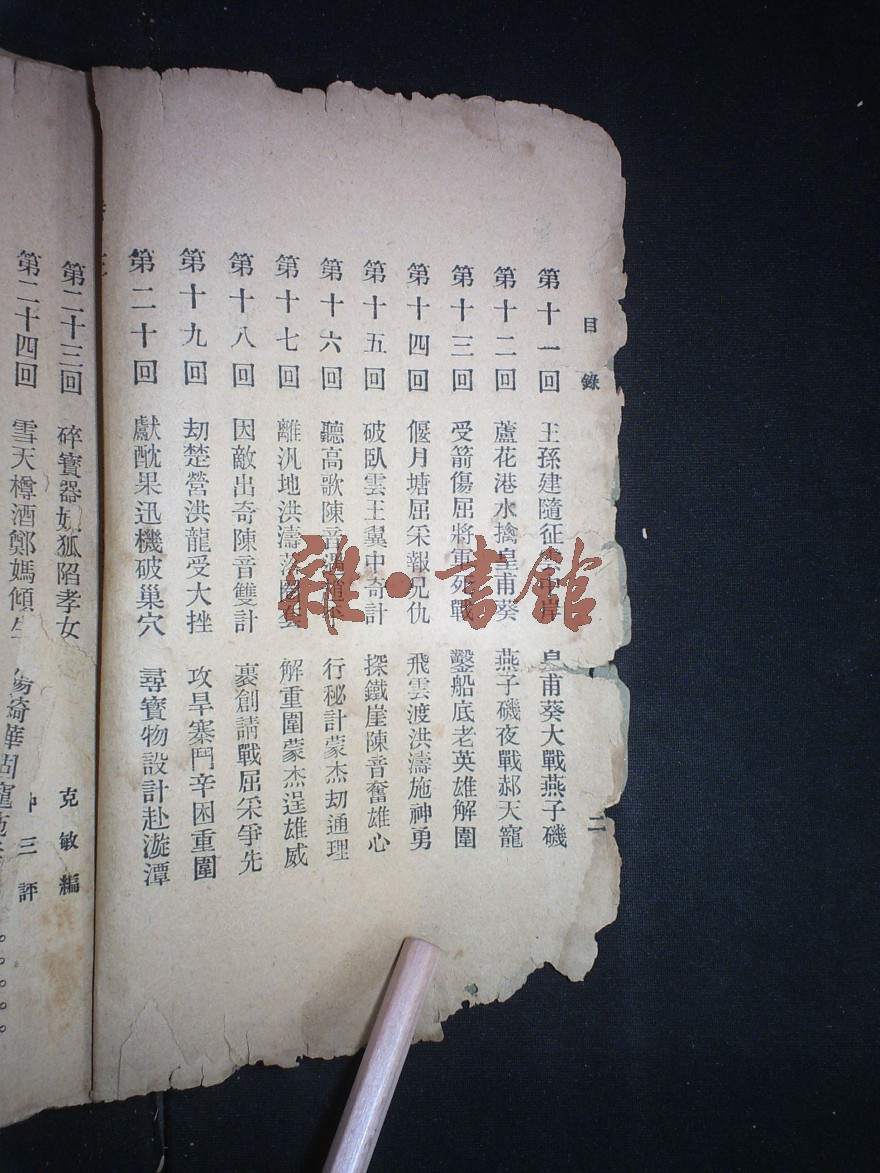 目錄
第十一回 王孫建隨征 岸 皇甫葵大戰燕子磯
第十二回 蘆花港水擒皇甫葵 燕子磯夜戰郝天寵
第十三回 受箭傷屈將軍死戰 鑿船底老英雄解圍
第十四回 偃月塘屈采報兄仇 飛雲渡洪濤施神勇
第十五回 破臥雲王翼中奇計 探鐵崖陳音奮雄心
第十六回 聽高歌陳音 行秘計蒙杰劫通理
第十七回 離汎地洪濤落圈套 解重圍蒙杰逞雄威
第十八回 因敵出奇陳音雙計 裹創請戰屈采爭先
第十九回 劫楚營洪龍受大挫 攻旱寨鬥辛困重圍
第二十回 獻酖果迅機破巢穴 尋寶物設計赴漩潭
二
第二十三回 碎寶器 狐陷孝女
第二十四回 雪天樽酒鄭媽傾
克敏編
三評
雜·書館